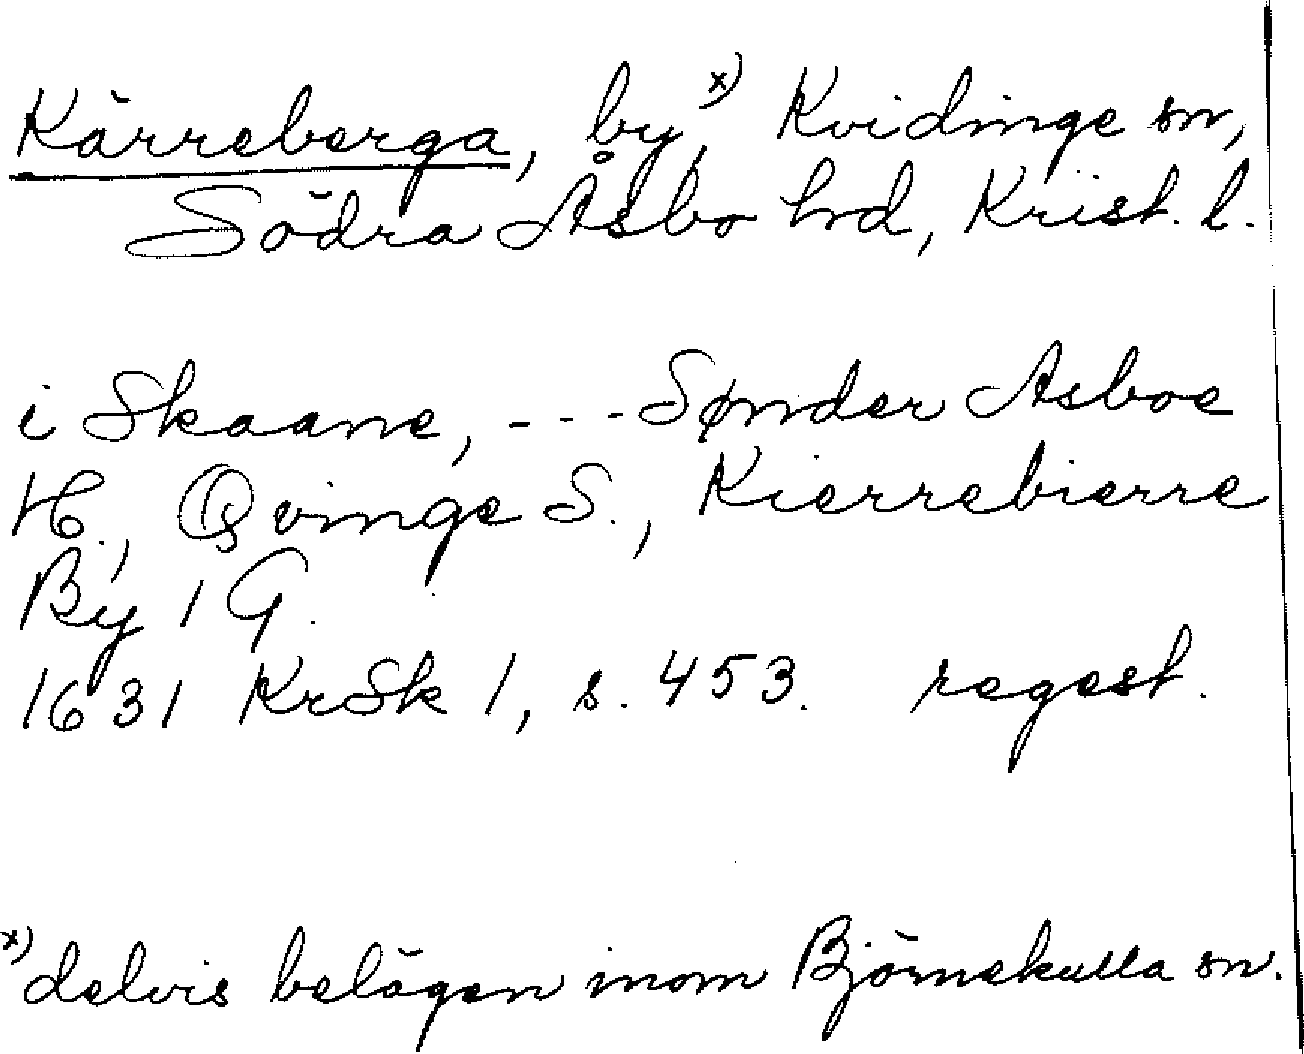 Kärreberga, by,x) Kvidinge sn,
Södra Åsbo hd, Krist. l.
i Skaane, --- Sønder Asboe
H., Qvinge S., Kierrebierre
By 1 G.
1631 KrSk 1, s. 453. regest.
x) delvis belägen inom Björnekulla sn.